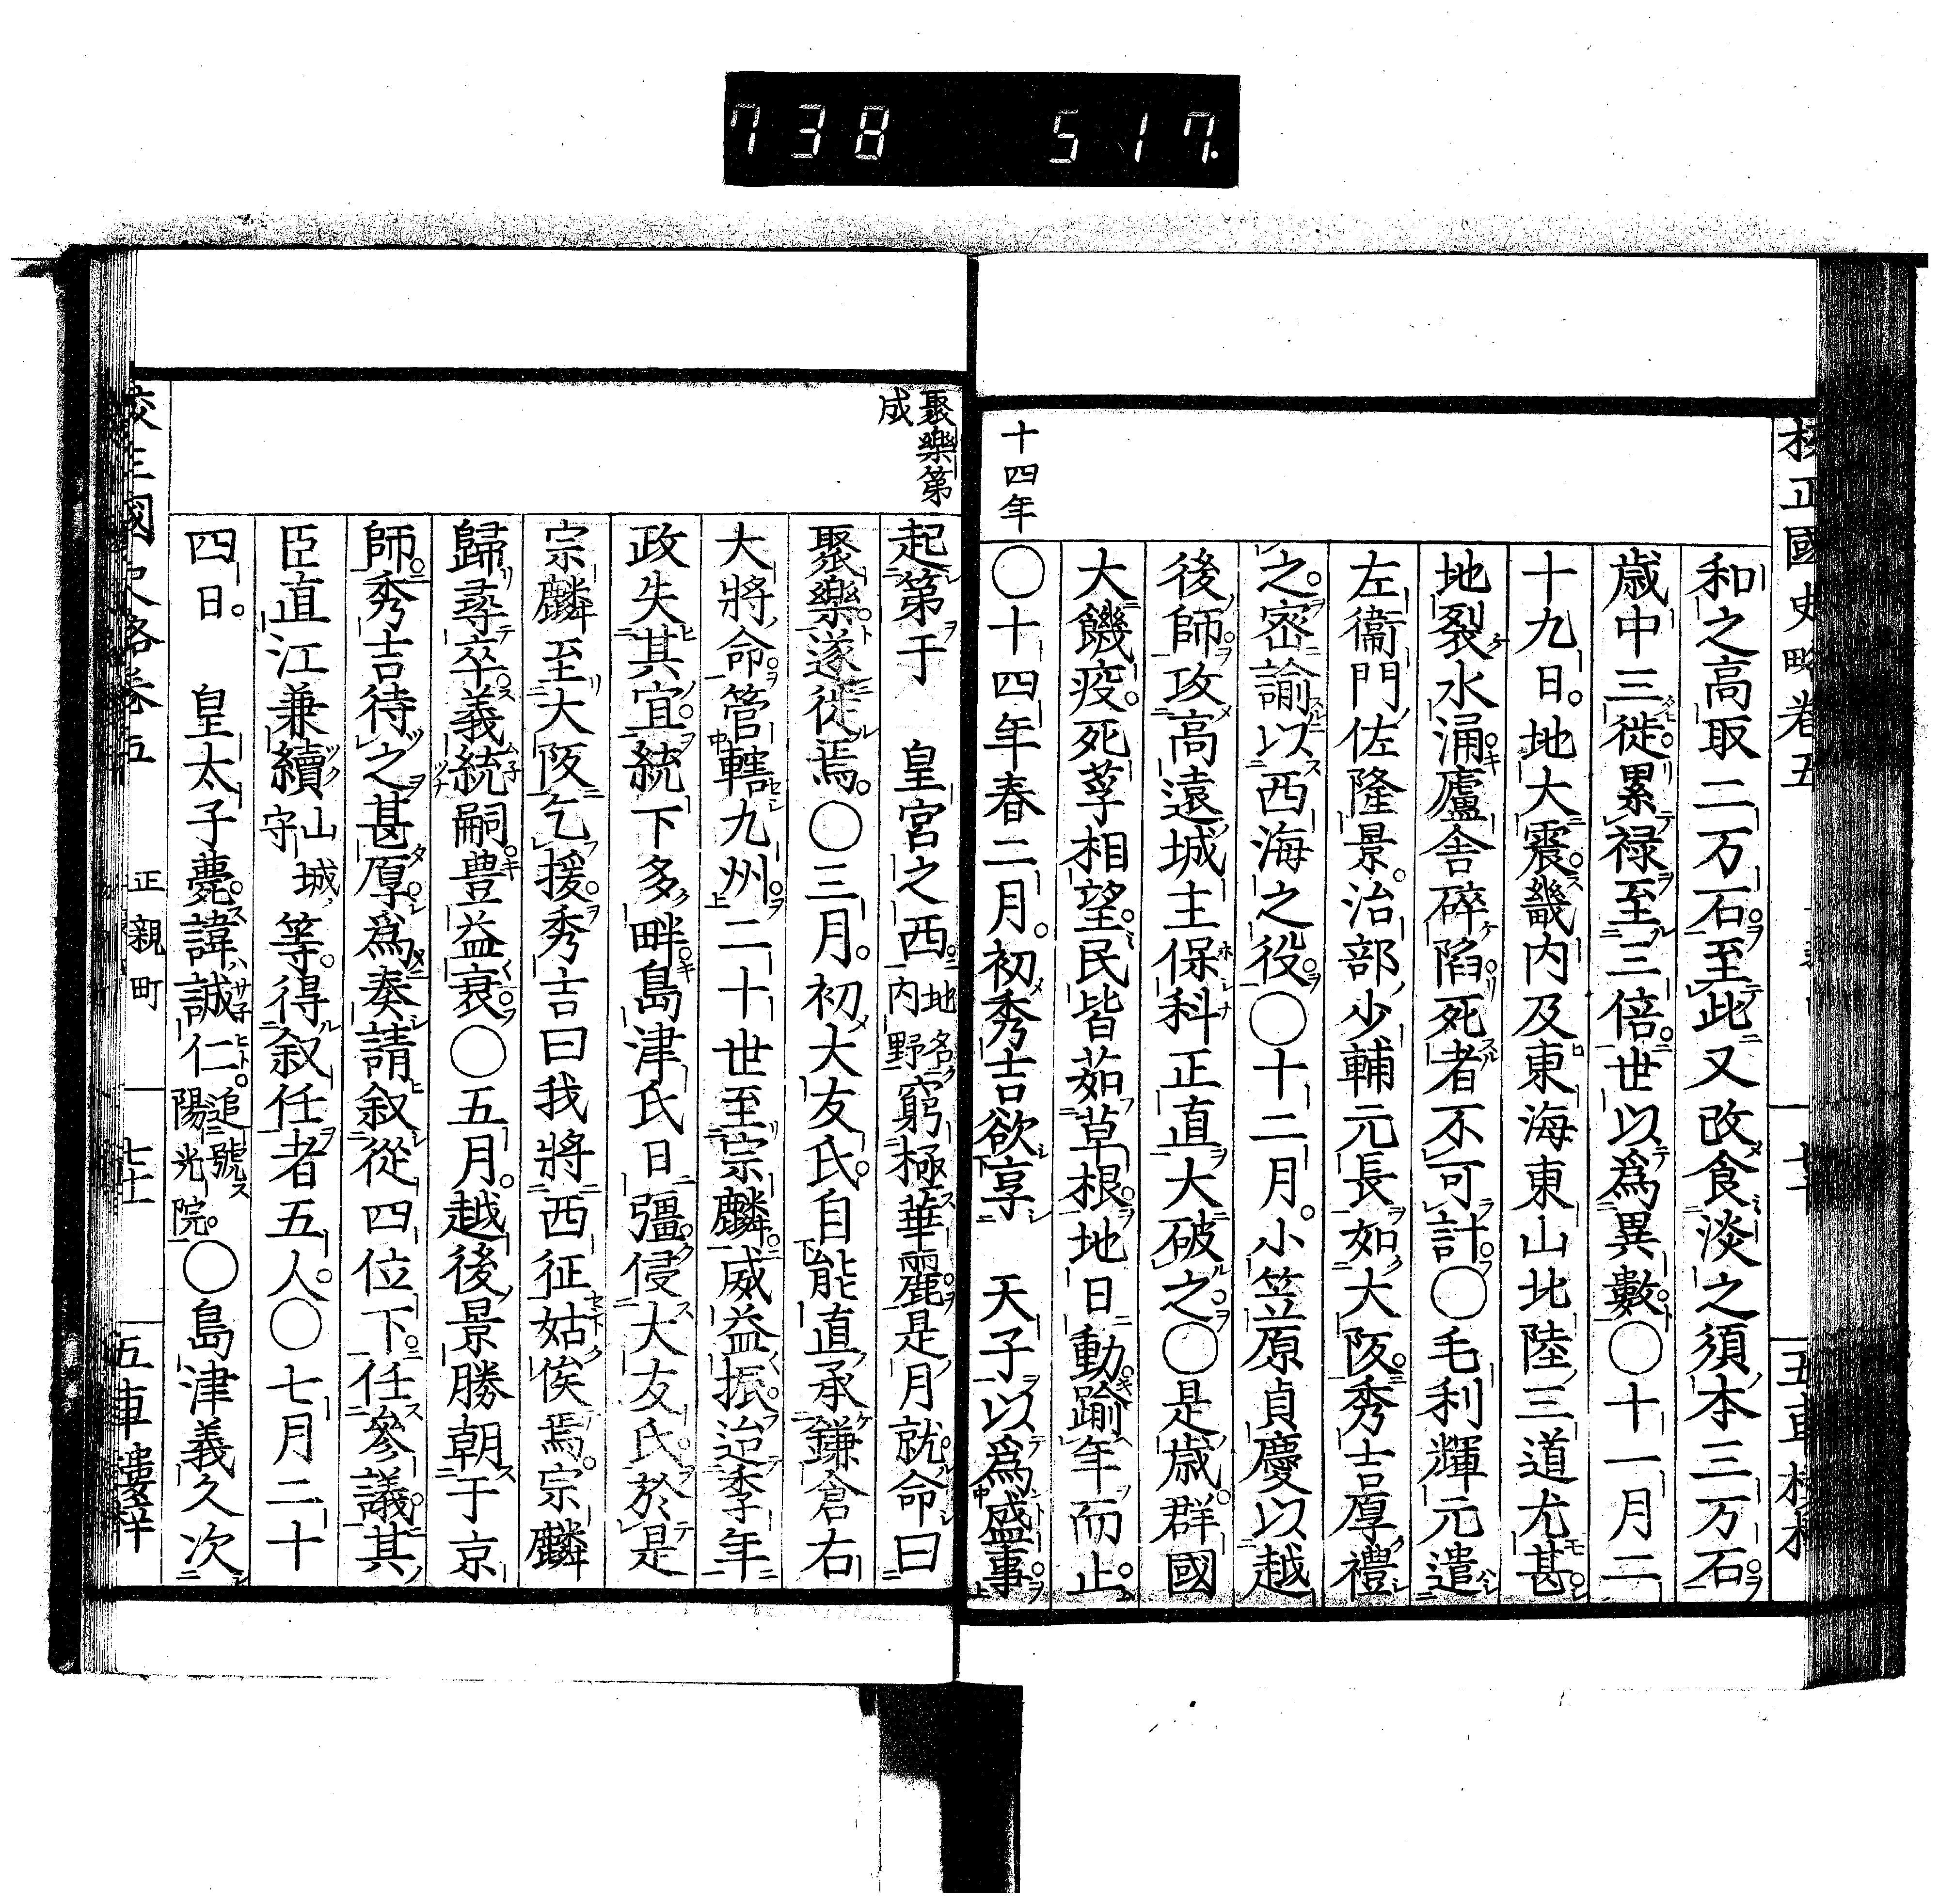 738 517.
校正國史略卷五
和之高取二万石至此又改食淡之須本三万石
歳中三徙累禄至三倍世以爲異數〇十一月二
十九日地大震畿内及東海東山北陸三道尤甚
地裂水涌廬舎碎陷死者不可計〇毛利輝元遣
左衞門佐隆景治部少輔元長如大阪秀吉厚禮
之密諭以西海之役〇十二月小笠原貞慶以越
後師攻高遠城主保科正直大破之〇是歳群國
大饑疫死莩相望民皆茹草根地日動踰年而止
十四年
〇十四年春二月初秀吉欲享　天子以爲盛事
聚樂第
成
起第于　皇宮之西地名内野窮極華麗是月就命曰
聚樂遂徙焉〇三月初大友氏自能直承鎌倉右
大將命管轄九州二十世至宗麟威益振迨季年
政失其宜統下多畔島津氏日彊侵大友氏於是
宗麟至大阪乞援秀吉曰我將西征姑俟焉宗麟
歸尋卒義統嗣豊益衰〇五月越後景勝朝于京
師秀吉待之甚厚爲奏請叙從四位下任參議其
臣直江兼續山城守等得叙任者五人〇七月二十
四日　皇太子薨諱誠仁追號陽光院〇島津義久次
校正國史略卷五　正親町　七十一　五車樓梓